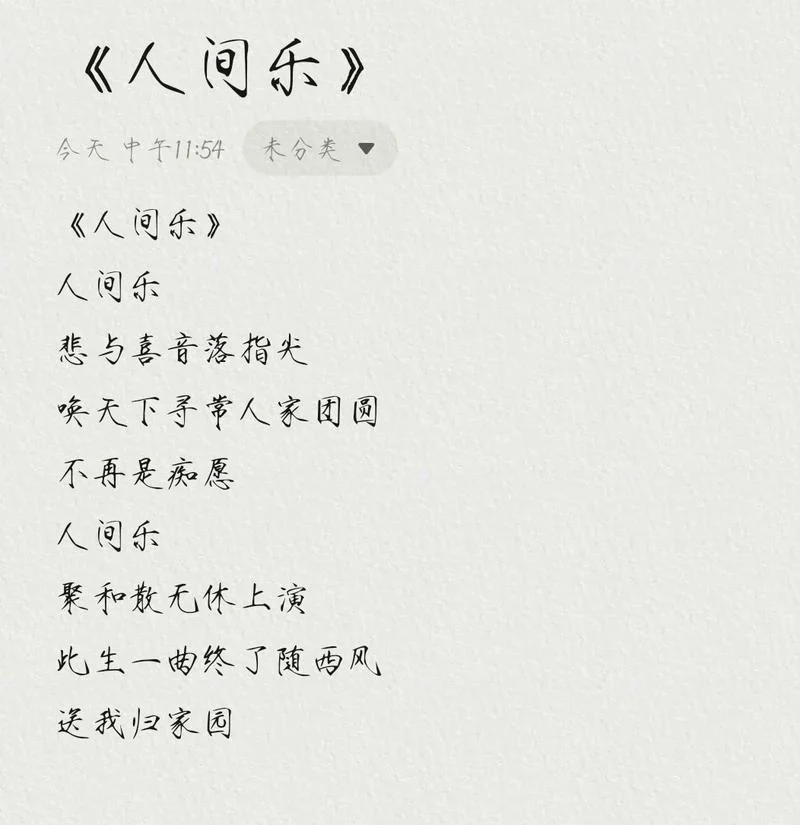 《人间乐》
今天 中午11:54 未分类
《人间乐》
人间乐
悲与喜音落指尖
唤天下寻常人家团圆
不再是痴愿
人间乐
聚和散无休上演
此生一曲终了随西风
送我归家园